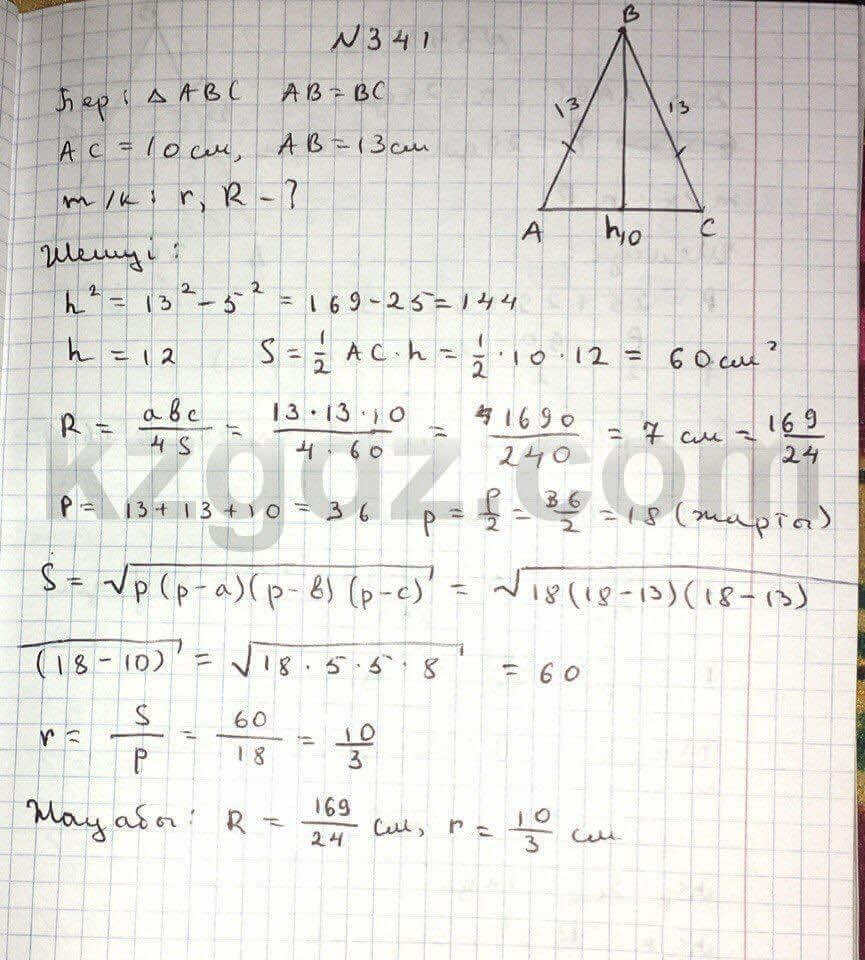 N341
Бер: △ABC AB=BC
AC=10см, AB=13см
т/к: r, R-?
Шешуі:
B
13
13
A
h
10
C
h² = 13² - 5² = 169 - 25 = 144
h = 12 S = 1/2 AC · h = 1/2 · 10 · 12 = 60 см²
R = abc/4S = 13·13·10/4·60 = 1690/240 = 7 см = 169/24
P = 13+13+10 = 36 p = P/2 = 36/2 = 18 (жарты)
S = √p(p-a)(p-b)(p-c) = √18(18-13)(18-13)
(18-10) = √18·5·5·8 = 60
r = S/p = 60/18 = 10/3
Жауабы: R = 169/24 см, r = 10/3 см
kzgdz.com